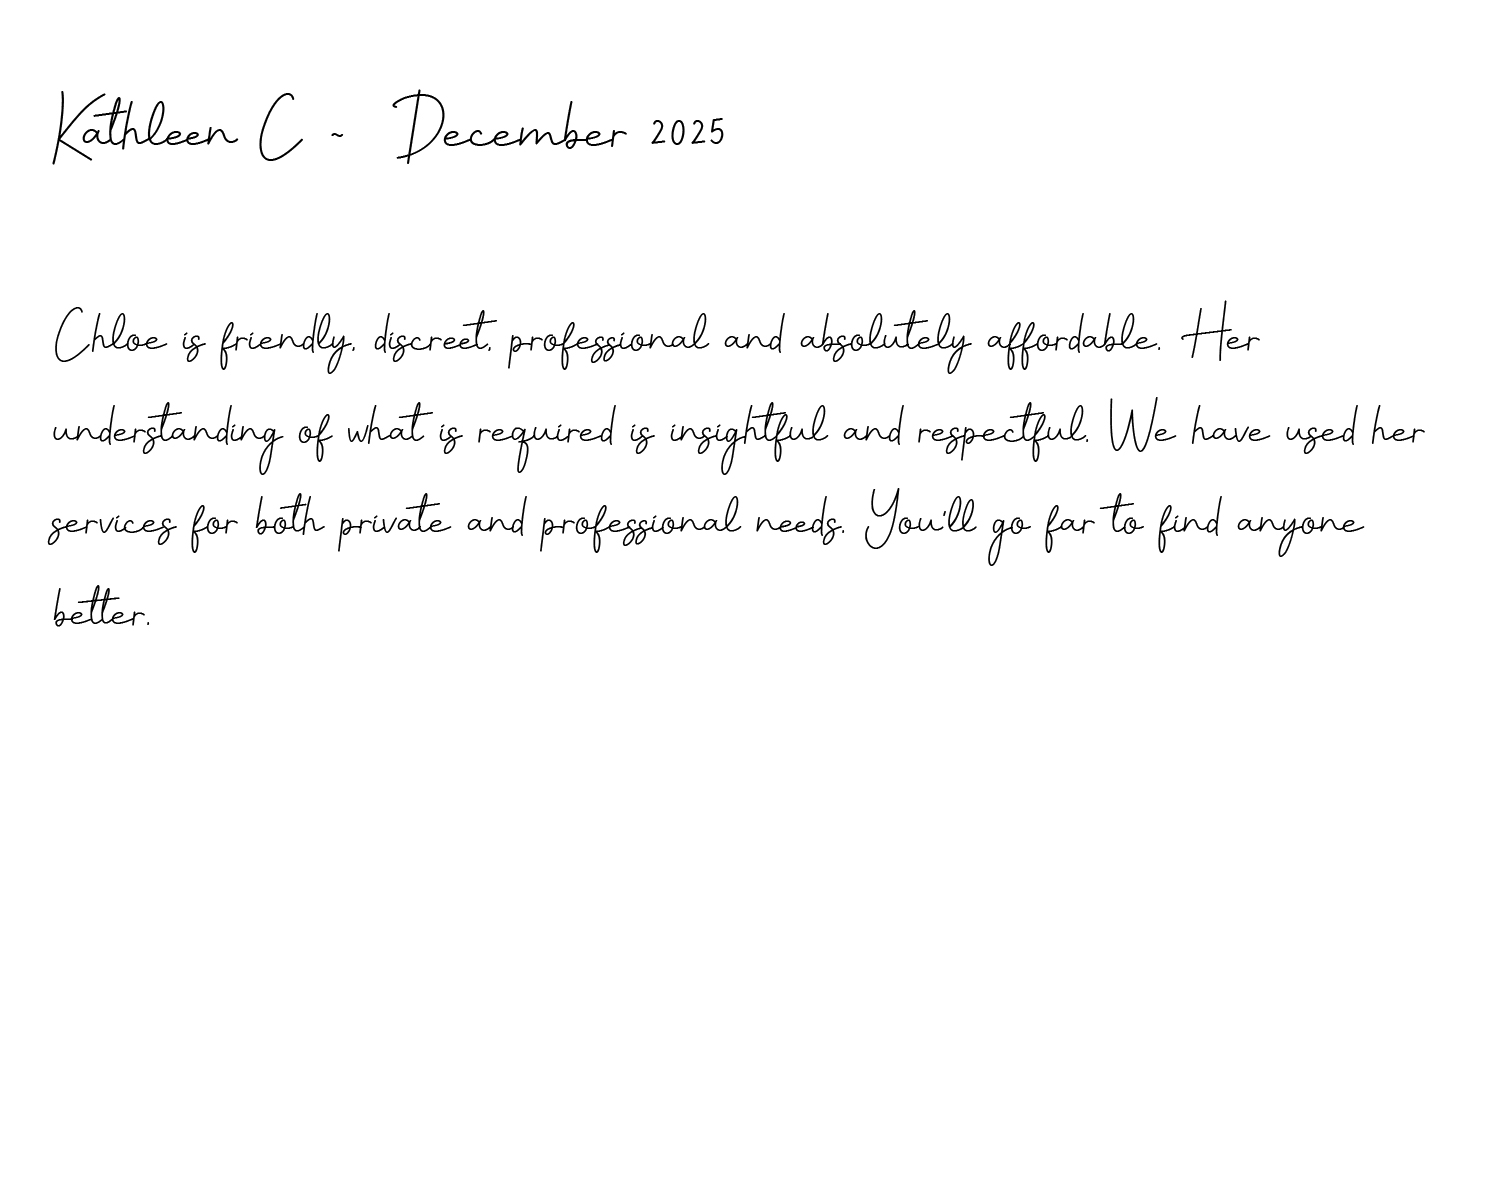 Kathleen C ~ December 2025
Chloe is friendly, discreet, professional and absolutely affordable. Her
understanding of what is required is insightful and respectful. We have used her
services for both private and professional needs. You'll go far to find anyone
better.